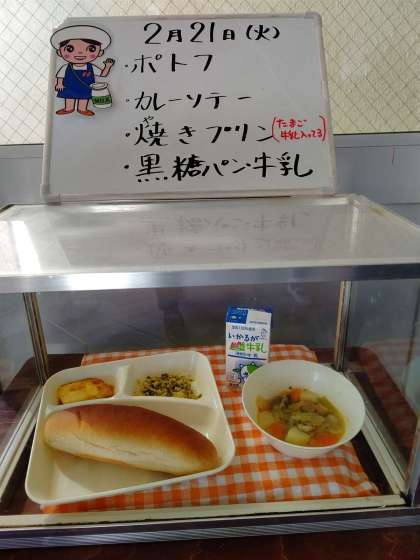 2月21日(火)
・ポトフ
・カレーソテー
や
・焼きプリン(たまご
牛乳入ってる)
・黒糖パン・牛乳
いかるが
牛乳